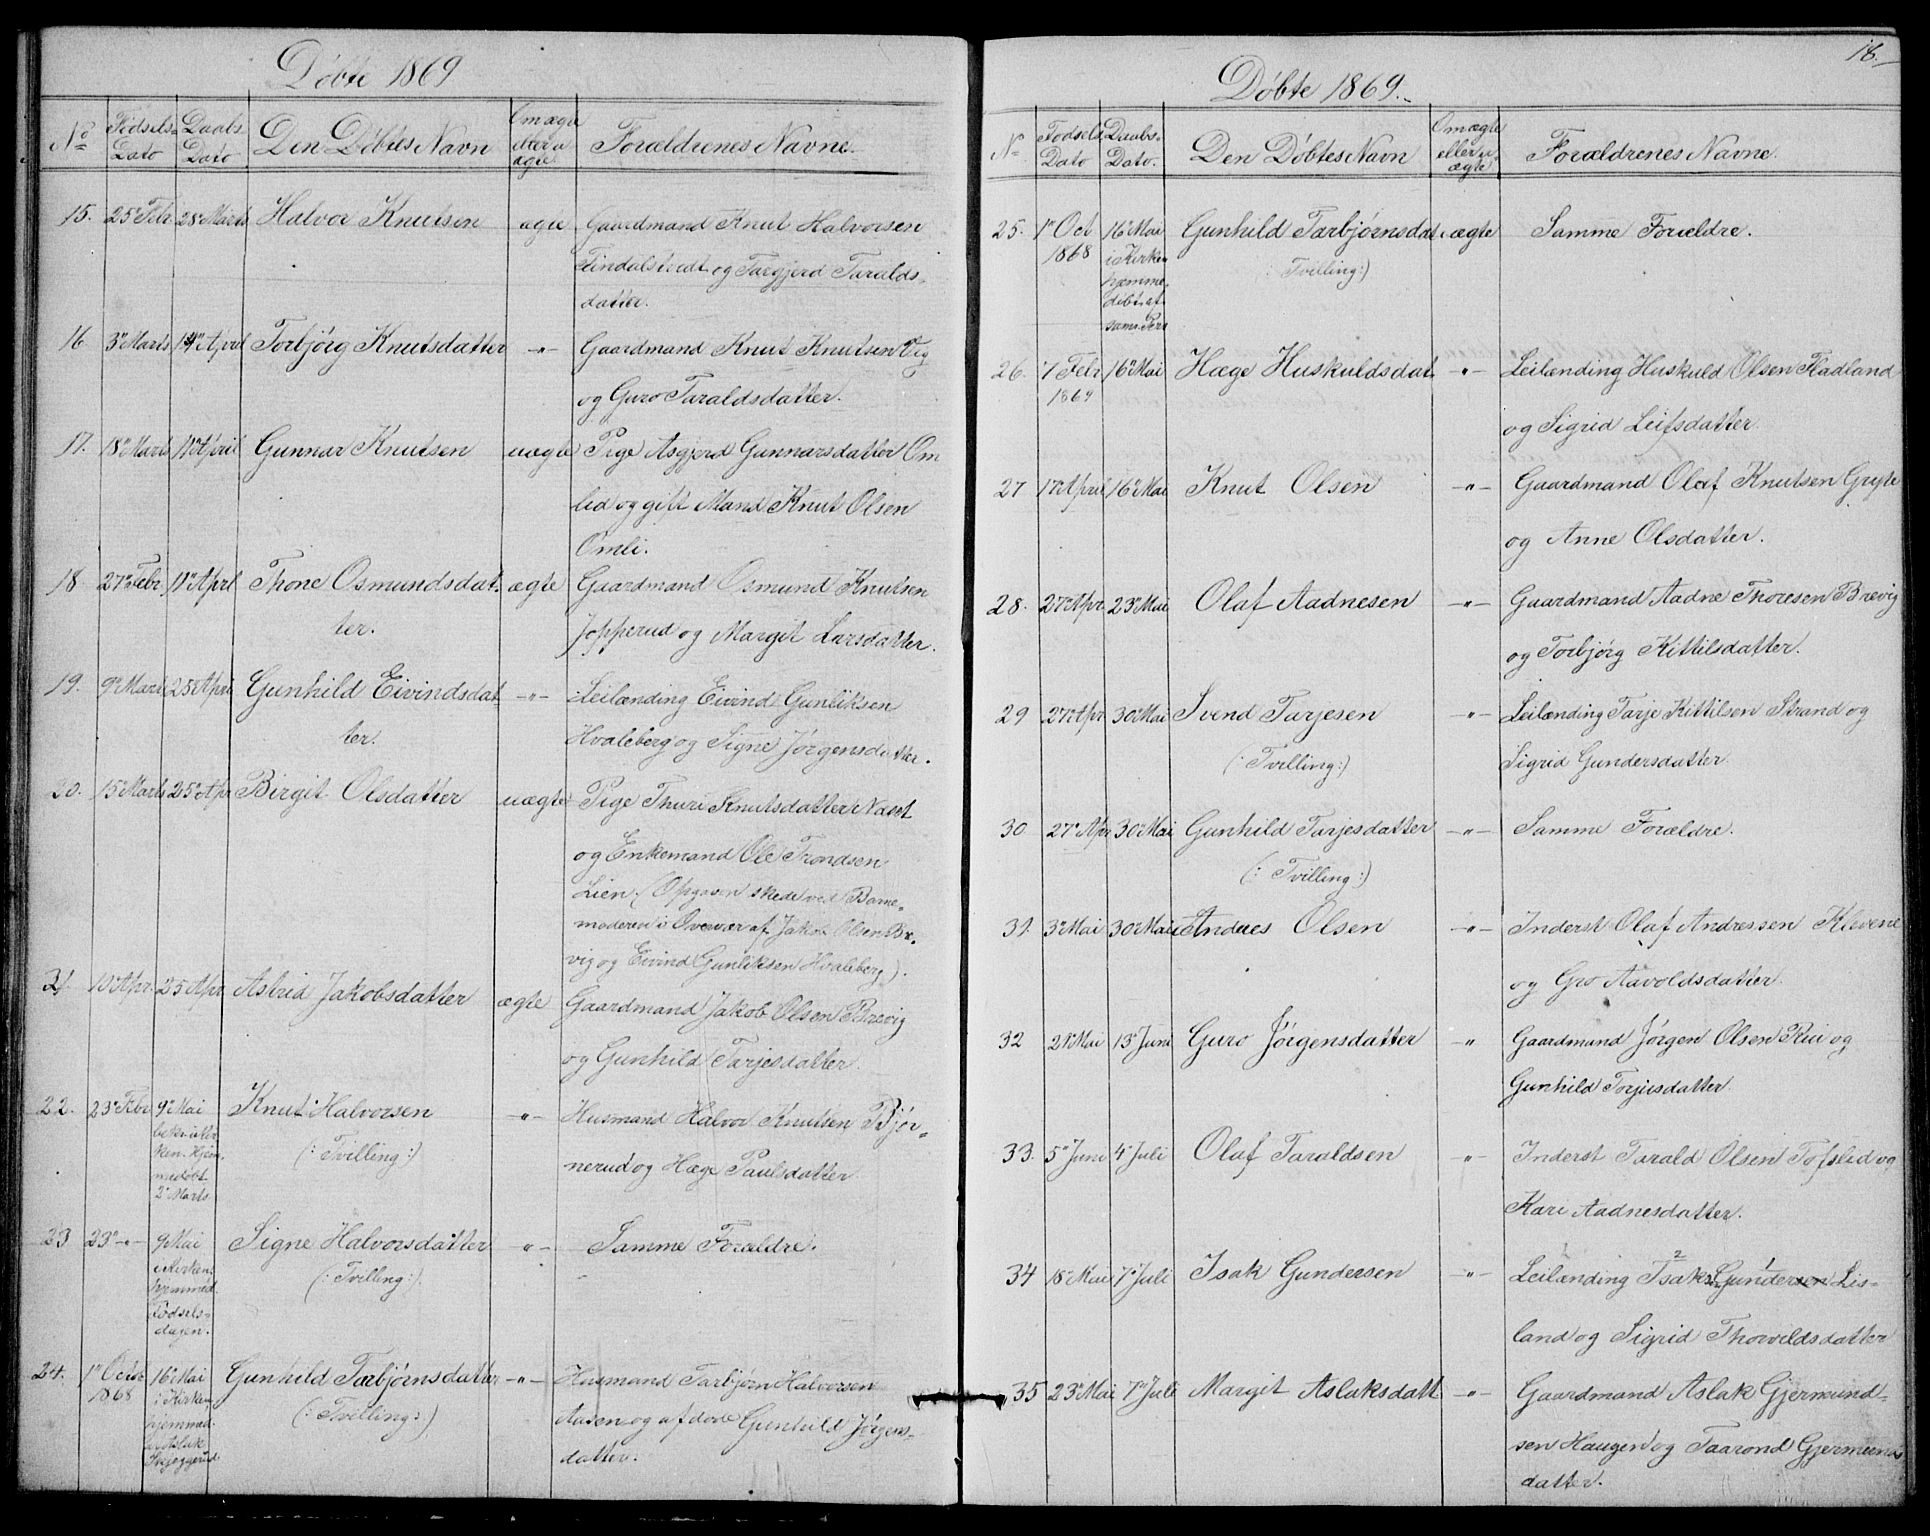 Døbte 1869
No Fødsels-Dato Daabs-Dato Den Døbtes Navn Om ægte eller uægte Forældrenes Navne.
15. 25 Febr 28 Marts Halvor Knutsen ægte Gaardmand Knut Halvorsen
Tindalstvedt og Targjerd Taralds-
datter.
16 3 Marts 11 April Torbjørg Knutsdatter -"- Gaardmand Knut Knutsen Vig
og Guro Taraldsdatter.
17. 18 Marts 11 April Gunnar Knutsen uægte Pige Asgjerd Gunnarsdatter Om
lid og gift Mand Knut Olsen
Omli.
18 27 Febr. 11 April Thone Osmundsdat- ægte Gaardmand Osmund Knutsen
ter. Jopperud og Margit Larsdatter.
19. 9 Marts 25 April Gunhild Eivindsdat -"- Leilænding Eivind Gunliksen
ter. Hvaleberg og Signe Jørgensdatter.
20. 15 Marts 25 Apr Birgit Olsdatter uægte Pige Thuri Knutsdatter
og Enkemand Ole Trondsen
Lien. (Opgaven skede ved Barne-
moderen i Overvær af Jakob Olsen Bre-
vig og Eivind Gunliksen Hvaleberg).
21 10 Apr. 25 Apr Astrid Jakobsdatter ægte Gaardmand Jakob Olsen Brevig
og Gunhild Tarjesdatter.
22. 23 Febr 9 Mai Knut Halvorsen -"- Husmand Halvor Knutsen Bjør-
bekr. i Kir
ken. Hjem- (: Tvilling :) nerud og Hæge Paulsdatter
medøbt
2 Marts
23 23 -"- 9 Mai Signe Halvorsdatter -"- Samme Forældre.
i Kirken. (: Tvilling :).
hjemmed.
Fødsels-
dagen.
24. 1 Octbr 16 Mai Gunhild Tarbjørnsdatter -"- Husmand Tarbjørn Halvorsen
1868 i Kirken (: Tvilling :) Aasen og afdøde Gunhild Jørgens-
hjemmed.
av Aslak datter.
Skjeggerud
18.
Døbte 1869.
No Fødsels Dato Daabs-Dato. Den Døbtes Navn Om ægte eller uægte Forældrenes Navne.
25. 1 Oct 16 Mai Gunhild Tarbjørnsdat. ægte Samme Forældre.
1868 i Kirken (: Tvilling :)
hjemme
døbt af
sam. Pers
26. 7 Febr 16 Mai Hæge Huskuldsdat -"- Leilænding Huskuld Olsen Fladland
1869
og Sigrid Leifsdatter.
27 17 April 16 Mai Knut Olsen -"- Gaardmand Olaf Knutsen Gryte
og Anne Olsdatter.
28. 27 Apr 23 Mai Olaf Aadnesen -"- Gaardmand Aadne Thoresen Brevig
og Torbjørg Kittilsdatter.
29 27 Apr 30 Mai Svend Tarjesen -"- Leilænding Tarje Kittilsen Strand og
(: Tvilling :) Sigrid Gundersdatter.
30 27 Apr 30 Mai Gunhild Tarjesdatter -"- Samme Forældre.
(: Tvilling :)
31 3 Mai 30 Mai Andres Olsen -"- Inderst Olaf Andressen Klevene
og Gro Aavoldsdatter.
32 21 Mai 13 Juni Guro Jørgensdatter -"- Gaardmand Jørgen Olsen Rui og
Gunhild Torjusdatter.
33. 5 Juni 4 Juli Olaf Taraldsen -"- Inderst Tarald Olsen Tofslid og
Kari Aadnesdatter.
34 18 Mai 7 Juli Isak Gundersen -"- Leilænding Isaksen Gunder Lis-
land og Sigrid Thorvildsdatter
35 23 Mai 7 Juli Margit Aslaksdatt -"- Gaardmand Aslak Gjermund-
sen Haugen og Taarond Gjermunds
datter.